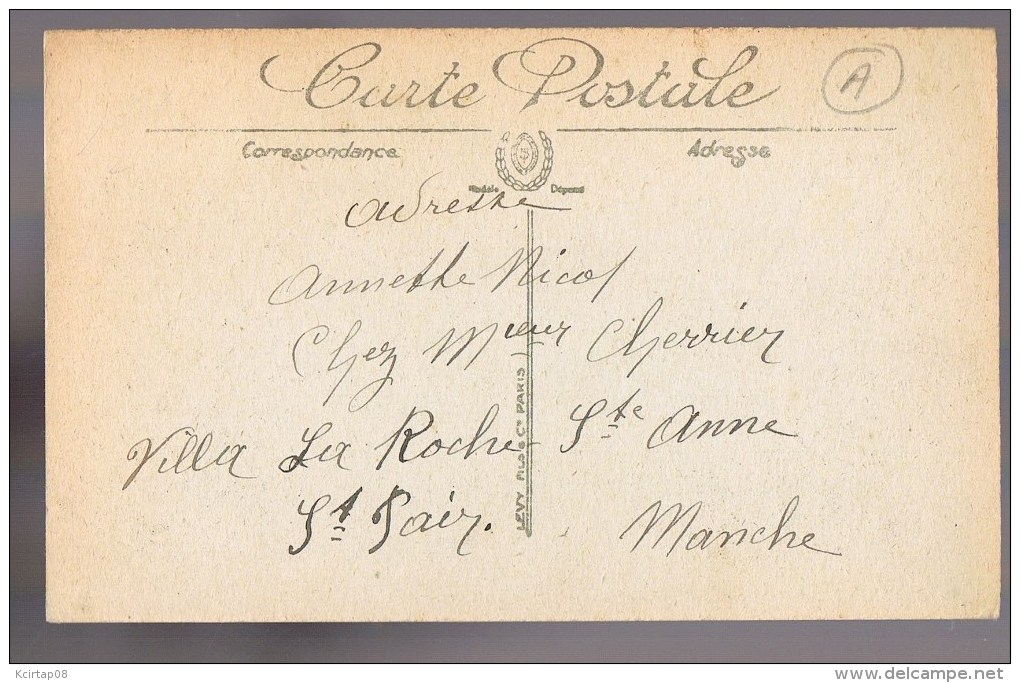 Carte Postale
A
Correspondance
Adresse
Modèle Déposé
adresse
Annette Nicol
Chez Mieur Cherrier
Villa La Roche Ste Anne
St Pair.
Manche
LEVY Fils & Cie PARIS
Kcirtap08
www.delcampe.net